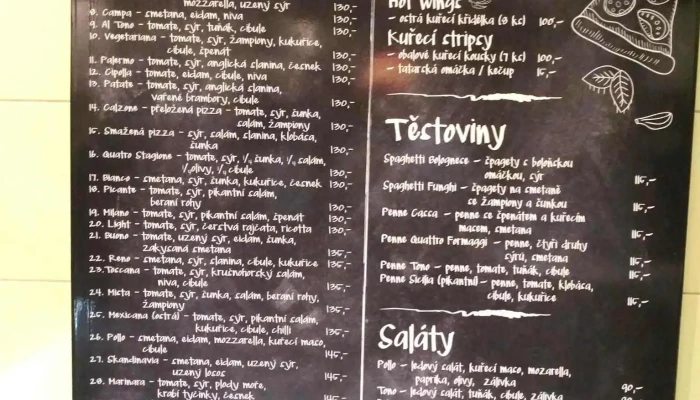 mozzarella, uzený sýr 130,-
8. Campa - smetana, eidam, niva 130,-
9. Al Tono - tomate, sýr, tuňák, cibule
10. Vegetariana - tomate, sýr, žampiony, kukuřice,
cibule, špenát 130,-
11. Palermo - tomate, sýr, anglická slanina, česnek 130,-
12. Cipolla - tomate, eidam, cibule, niva 130,-
13. Patate - tomate, sýr, anglická slanina,
vařené brambory, cibule 130,-
14. Calzone - přeložená pizza - tomate, sýr, šunka,
salám, žampiony 130,-
15. Smažená pizza - sýr, salám, slanina, klobása,
šunka 130,-
16. Quatro Stagione - tomate, sýr, 1/4 šunka, 1/4 salám,
1/4 olivy, 1/4 cibule 130,-
17. Bianco - smetana, sýr, šunka, kukuřice, česnek 130,-
18. Picante - tomate, sýr, pikantní salám,
beraní rohy 130,-
19. Milano - tomate, sýr, pikantní salám, špenát 130,-
20. Light - tomate, sýr, čerstvá rajčata, ricotta 130,-
21. Buono - tomate, uzený sýr, eidam, šunka,
zakysaná smetana 135,-
22. Reno - smetana, sýr, slanina, cibule, kukuřice 135,-
23. Toccana - tomate, sýr, krušnohorský salám,
niva, cibule 135,-
24. Mista - tomate, sýr, šunka, salám, beraní rohy,
žampiony 135,-
25. Mexicana (ostrá) - tomate, sýr, pikantní salám,
kukuřice, cibule, chilli 135,-
26. Pollo - smetana, eidam, mozzarella, kuřecí maso,
cibule 145,-
27. Skandinavia - smetana, eidam, uzený sýr,
uzený losos 145,-
28. Marinara - tomate, sýr, plody moře,
krabí tyčinky, česnek 145,-
Hot Wings
- ostrá kuřecí křidélka (8 ks) 100,-
Kuřecí stripsy
- obalové kuřecí kousky (7 ks) 100,-
- tatarská omáčka / kečup 15,-
Těstoviny
Spaghetti Bolognese - špagety s boloňskou
omáčkou, sýr 115,-
Spaghetti Funghi - špagety na smetaně
se žampiony a šunkou 115,-
Penne Cassa - penne se špenátem a kuřecím
masem, smetana 115,-
Penne Quattro Formaggi - penne, čtyři druhy
sýrů, smetana 115,-
Penne Tono - penne, tomate, tuňák, cibule 115,-
Penne Sicilia (pikantní) - penne, tomate, klobása,
cibule, kukuřice 115,-
Saláty
Pollo - ledový salát, kuřecí maso, mozarella,
paprika, olivy, zálivka 90,-
Tono - ledový salát, tuňák, cibule, zálivka 90,-